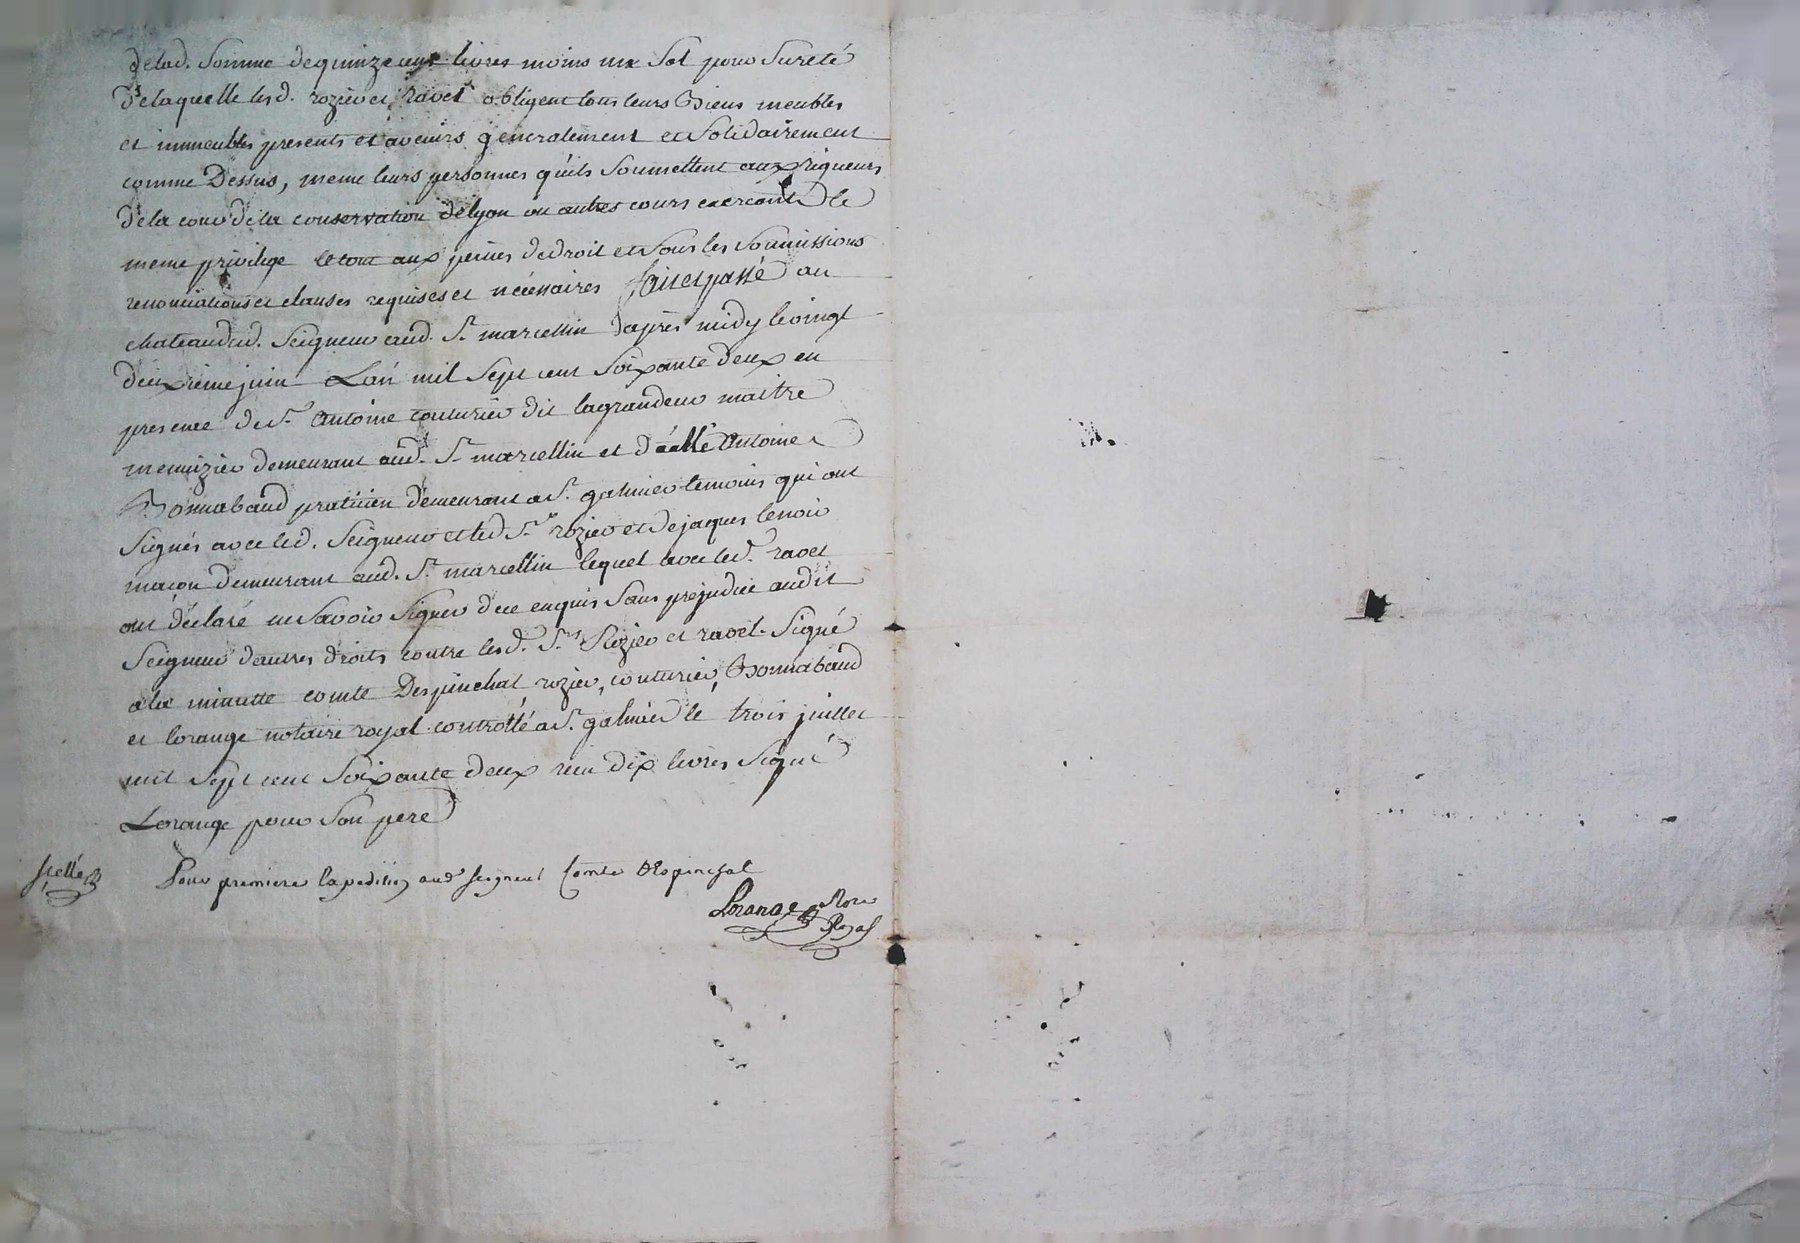 delad. Somme dequinze cent livres moins un Sol pour Sureté
de laquelle lesd. rozier et ravel obligent tous leurs Biens meubles
et immeubles presents et avenirs generalement et Solidairement
comme Dessus, meme leurs personnes qu'ils Soumettent aux rigueurs
de la cour de la conservation delyon ou autres cours exercant le
meme privilege le tout aux peines de droit et Sous les Soumissions
renonciations et clauses requises et nécessaires fait et passé au
chateau dud. Seigneur aud. St. marcellin d'après midy le vingt
deuxieme juin L'an mil Sept cent Soixante deux en
presence de Sr. antoine couturier dit lagrandeur maitre
menuizier demeurant aud. St. marcellin et de Me antoine
Bonnabaud praticien demeurant a St. galmier temoins qui ont
Signés avec led. Seigneur et led Sr. rozier et de jaques lenoir
maçon demeurant aud. St. marcellin lequel avec led. ravel
ont déclaré ne Savoir Signer de ce enquis Sans prejudice audit
Seigneur d'autres droits contre lesd. Srs Rozier et ravel. Signé
a la minutte comte Despinchal rozier, couturier, Bonnabaud
et lorange notaire royal controllé a St. galmier le trois juillet
mil Sept cent Soixante deux reçu dix livres Signé
Lorange pour Son pere
Scellé
Pour premiere expedition aud Seigneur Comte d'Espinchal
Lorange Nore
Royal